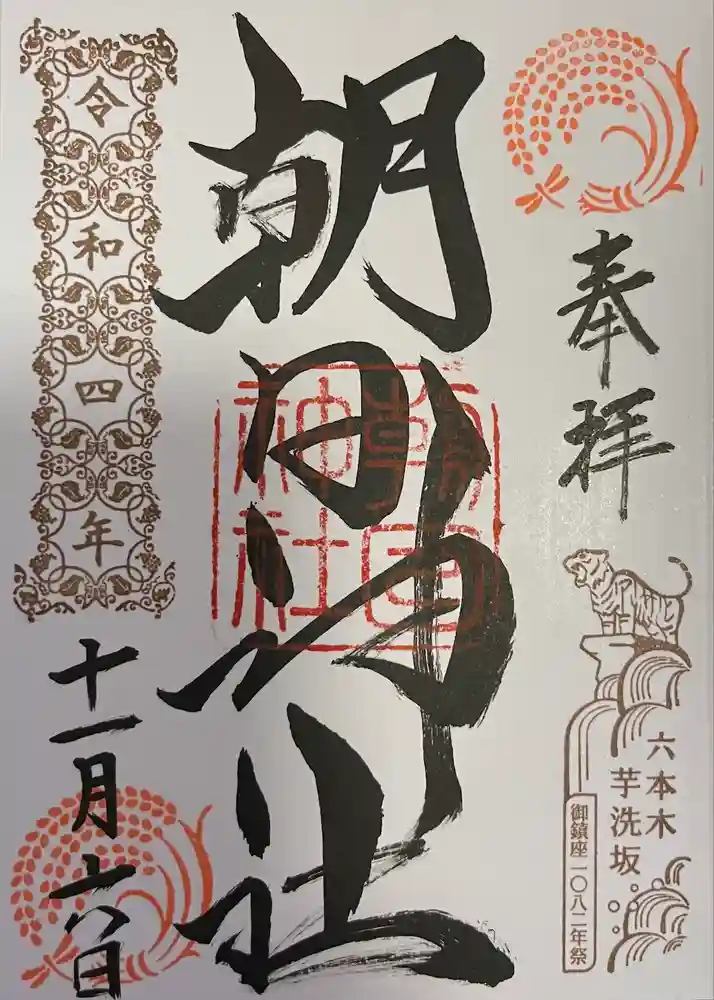 奉拝
六本木
芋洗坂
御鎮座一〇八二年祭
朝日神社
朝日神社
令和四年
十一月十八日